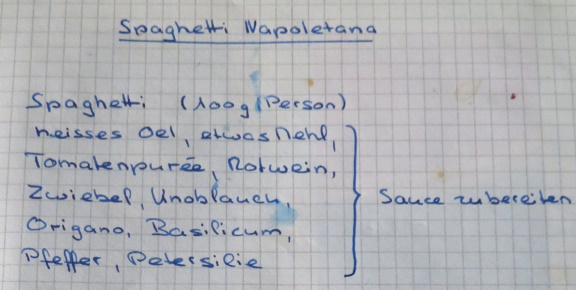 Spaghetti Napoletana
Spaghetti (100g/Person)
heisses Oel, etwas Mehl,
Tomatenpurée, Rotwein,
Zwiebel, Knoblauch,
Origano, Basilicum,
Pfeffer, Petersilie
Sauce zubereiten